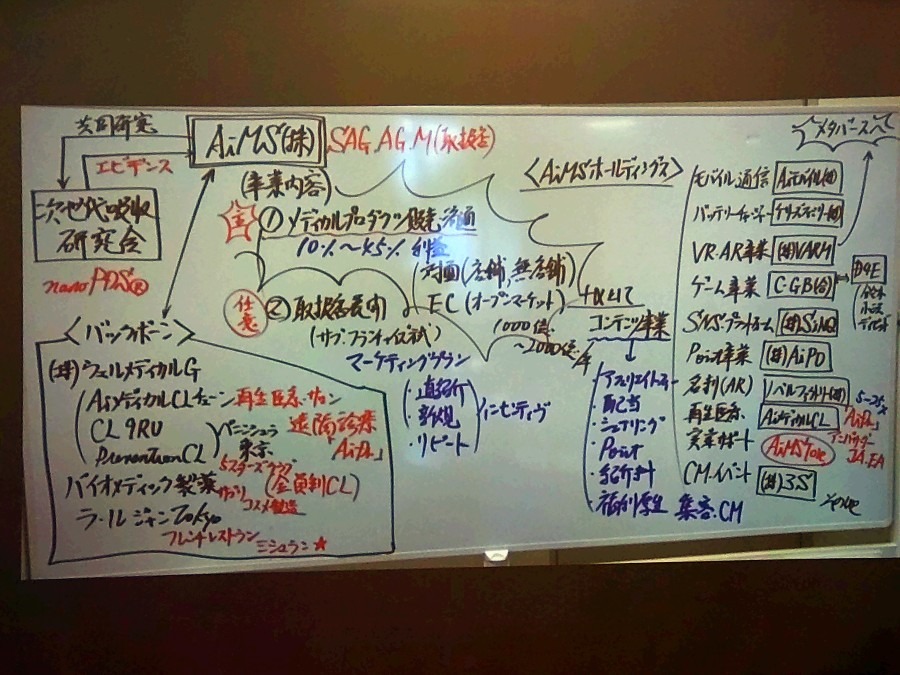 共同研究
エビデンス
次世代吸収
研究会
nano PDS®
AiMS(株)
SAG.AG.M(取扱店)
(事業内容)
主
① メディカルプロダクツ販売・流通
10%~45% 利益
対面(店舗,無店舗)
EC(オープンマーケット)
任意
② 取扱店展開
(サブ・フランチャイズ式)
1000億
~2000億/年
マーケティングプラン
・直紹介
・新規
・リピート
インセンティヴ
<バックボーン>
(株)ウェルメディカルG
AiメディカルCLチェーン 再生医療・サロン
CL 9RU ペニンシュラ
東京
遠隔診療
PreventionCL
「AiDr.」
5スターズクラブ
(会員制CL)
バイオメディック製薬
コスメ製造
ラ・ルジャンTokyo
フレンチレストラン
ミシュラン★
<AiMSホールディングス>
コンテンツ事業
・アフィリエイトフィー
・配当
・シェアリング
・Point
・紹介料
・福利厚生
集客.CM
メタバースへ
モバイル通信 Aiモバイル(株)
VR.AR事業 (株)VARY
ゲーム事業 C-GB(合)
D9E
SNS.プラットホーム
Point事業 (株)AiPO
名刺(AR)
再生医療 AiメディカルCL
「AiDr.」
実業サポート
アンバサダー
JA.EA
CM.イベント (株)3S